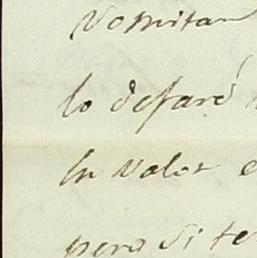 vomitan
lo dejaré
su valor e
pero si te